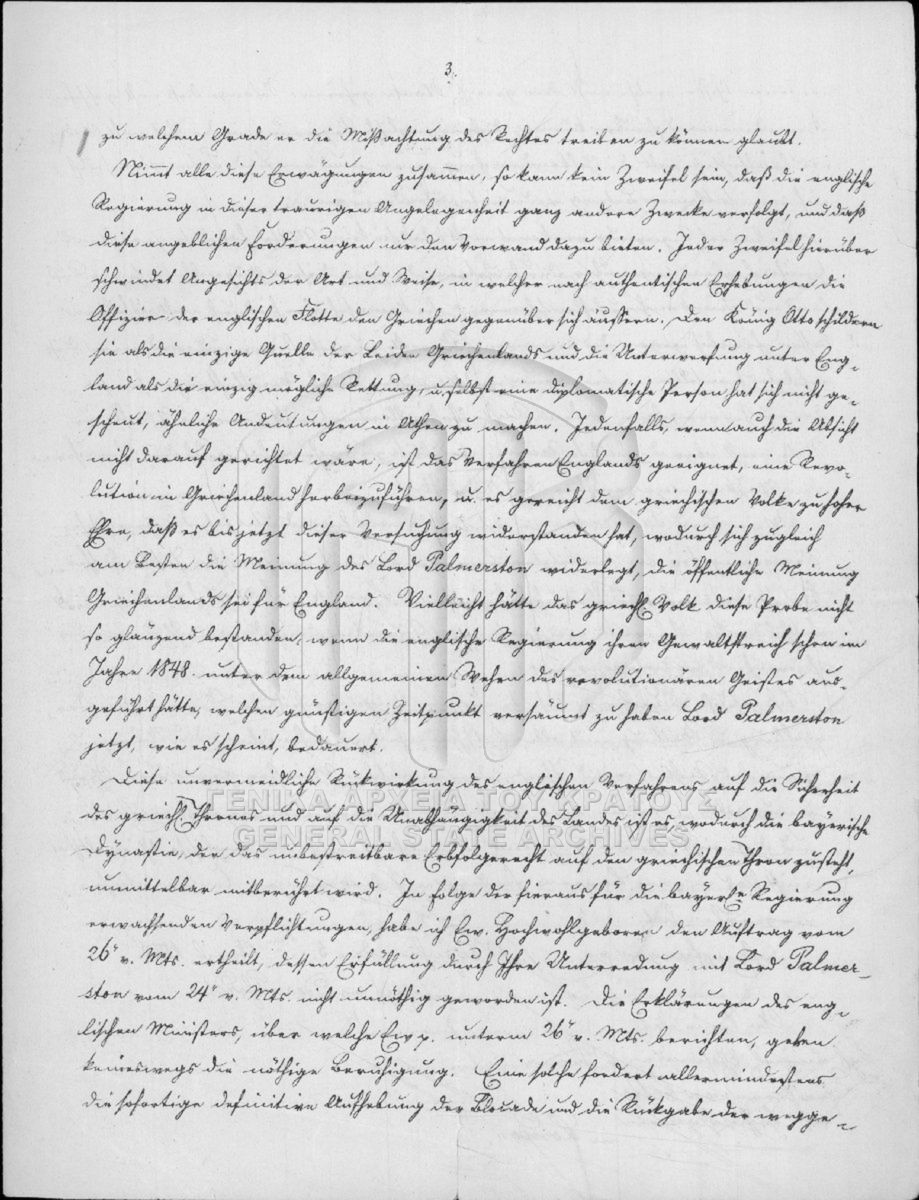 3.
zu welchem Grade er die Mißachtung des Rechtes treiben zu können glaubt.
Nimmt alle diese Erwägungen zusammen, so kann kein Zweifel sein, daß die englische
Regierung in dieser traurigen Angelegenheit ganz andere Zwecke verfolgt, und daß
diese angeblichen Forderungen nur den Vorwand dazu bieten. Jeder Zweifel hierüber
schwindet Angesichts der Art und Weise, in welcher nach authentischen Erhebungen die
Offiziere der englischen Flotte den Griechen gegenüber sich äussern. Den König Otto schildern
sie als die einzige Quelle der Leiden Griechenlands und die Unterwerfung unter Eng-
land als die einzig mögliche Rettung, u. selbst eine diplomatische Person hat sich nicht ge-
scheut, ähnliche Andeutungen in Athen zu machen. Jedenfalls, wenn auch die Absicht
nicht darauf gerichtet wäre, ist das Verfahren Englands geeignet, eine Revo-
lution in Griechenland herbeizuführen, u. es gereicht dem griechischen Volke zu hoher
Ehre, daß es bis jetzt dieser Versuchung widerstanden hat, wodurch sich zugleich
am Besten die Meinung des Lord Palmerston widerlegt, die öffentliche Meinung
Griechenlands sei für England. Vielleicht hätte das griech. Volk diese Probe nicht
so glänzend bestanden, wenn die englische Regierung ihren Gewaltstreich schon im
Jahre 1848. unter dem allgemeinen Wehen des revolutionären Geistes aus-
geführt hätte, welchen günstigen Zeitpunkt versäumt zu haben Lord Palmerston
jetzt, wie es scheint, bedauert.
Diese unvermeidliche Rückwirkung des englischen Verfahrens auf die Sicherheit
des griech. Thrones und auf die Unabhängigkeit des Landes ist es wodurch die bayerische
Dynastie, der das unbestreitbare Erbfolgerecht auf den griechischen Thron zusteht,
unmittelbar mitberührt wird. In Folge der hieraus für die bayersche Regierung
erwachsenden Verpflichtungen, habe ich Ew. Hochwohlgeboren den Auftrag vom
26n v. Mts. ertheilt, dessen Erfüllung durch Ihre Unterredung mit Lord Palmer-
ston vom 24n v. Mts. nicht unnöthig geworden ist. Die Erklärungen des eng-
lischen Ministers, über welche Ew p. unterm 26n v. Mts. berichten, geben
keineswegs die nöthige Beruhigung. Eine solche fordert allermindestens
die sofortige definitive Aufhebung der Blocade und die Rückgabe der wegge-
ΓΕΝΙΚΑ ΑΡΧΕΙΑ ΤΟΥ ΚΡΑΤΟΥΣ
GENERAL STATE ARCHIVES